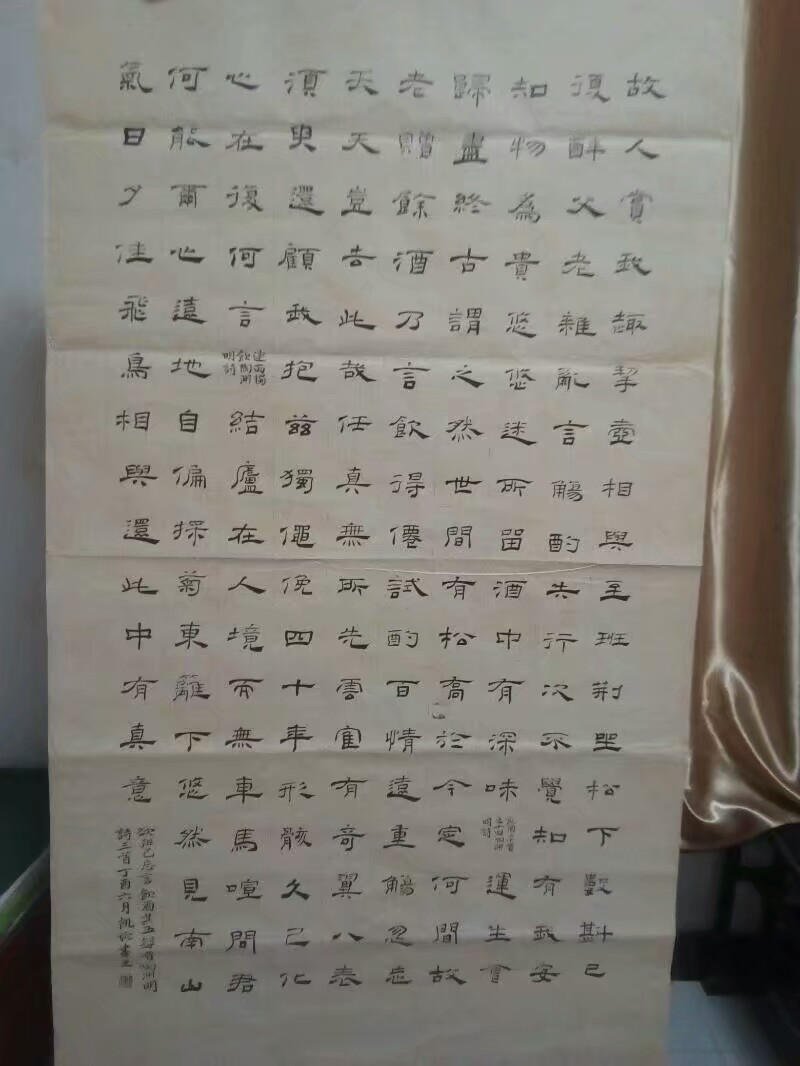 故人賞我趣挈壺相與至班荊坐松下數斟已
復醉父老雜亂言觴酌失行次不覺知有我安
知物為貴悠悠迷所留酒中有深味
飲酒二十首
其十四陶淵
明詩
運生會
歸盡終古謂之然世間有松高於今定何間故
老贈餘酒乃言飲得僊試酌百情遠重觴忽忘
天天豈去此哉任真無所先雲寉有奇翼八表
須臾還顧我抱茲獨僶俛四十年形骸久已化
心在復何言
連雨獨
飲陶淵
明詩
結廬在人境而無車馬喧問君
何能爾心遠地自偏採菊東籬下悠然見南山
氣日夕佳飛鳥相與還此中有真意
欲辨已忘言飲酒其五錄陶淵明
詩三首丁酉六月書之